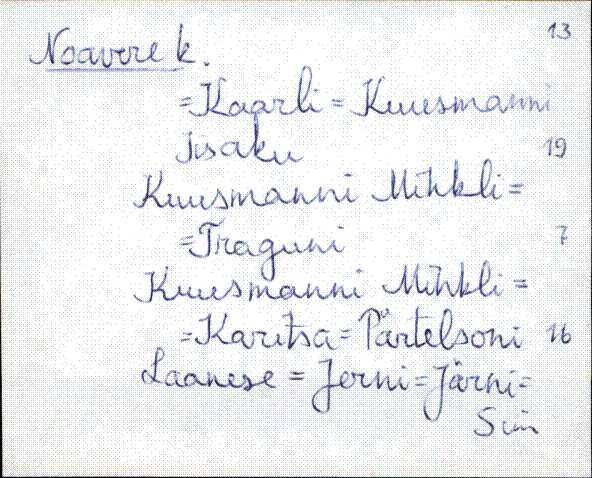 13
Noavere k.
=Kaarli=Kuusmanni
Jisaku 19
Kuusmanni Mihkli=
=Traguni 7
Kuusmanni Mihkli=
=Karitsa=Pärtelsoni 16
Laanese=Jerni=Järni=
Siin